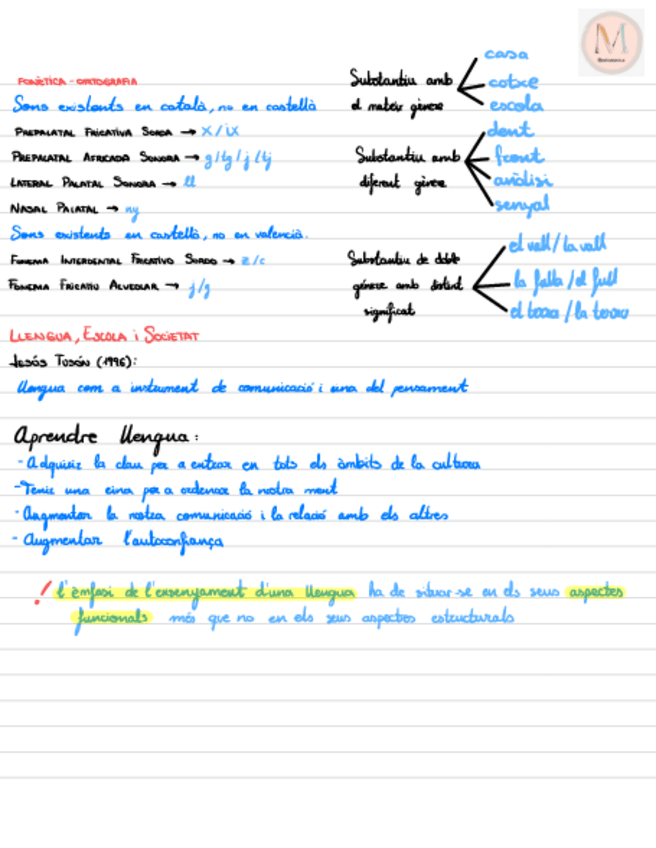 FONÈTICA - ORTOGRAFIA
Sons existents en català, no en castellà
PREPALATAL FRICATIVA SORDA → X / iX
PREPALATAL AFRICADA SONORA → g / tg / j / tj
LATERAL PALATAL SONORA → ll
NASAL PALATAL → ny
Sons existents en castellà, no en valencià.
FONEMA INTERDENTAL FRICATIVO SORDO → z / c
FONEMA FRICATIU ALVEOLAR → j / g
Substantiu amb
el mateix gènere
casa
cotxe
escola
Substantiu amb
diferent gènere
dent
front
anàlisi
senyal
Substantiu de doble
gènere amb distint
significat
el vall / la vall
la fulla / el full
LLENGUA, ESCOLA i SOCIETAT
JESÚS TUSÓN (1996):
Llengua com a instrument de comunicació i eina del pensament
Aprendre llengua:
- Adquirir la clau per a entrar en tots els àmbits de la cultura
- Tenir una eina per a ordenar la nostra ment
- Augmentar la nostra comunicació i la relació amb els altres
- Augmentar l'autoconfiança
! l'èmfasi de l'ensenyament d'una llengua ha de situar-se en els seus aspectes
funcionals més que no en els seus aspectos estructurals
M